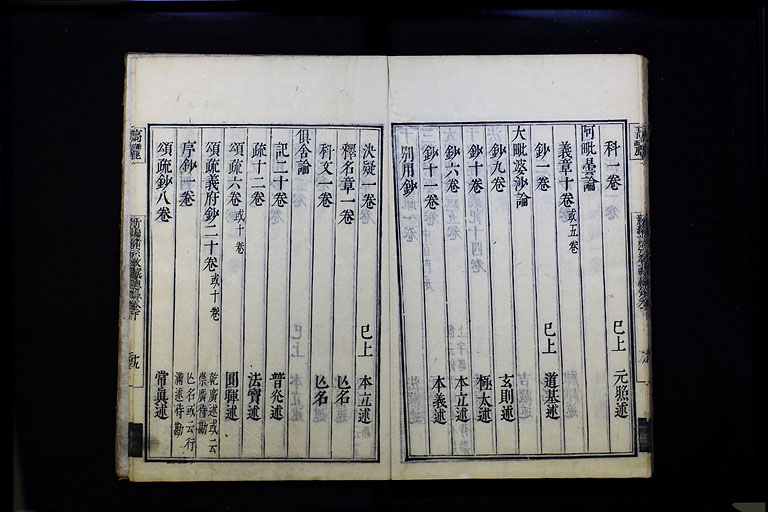 科一卷 已上 元照述
阿毗曇論
義章十卷或五卷
鈔二卷 已上 道基述
大毗婆沙論
鈔九卷 玄則述
鈔十卷 極太述
鈔六卷 本立述
鈔十一卷 本義述
別用鈔
決疑一卷 已上 本立述
釋名章一卷 亾名
科文一卷 亾名
俱舍論
記二十卷 普光述
疏十二卷 法寶述
頌疏六卷或十卷 圓暉述
頌疏義府鈔二十卷或十卷 乾廣述或云
崇廣待勘
序鈔一卷 亾名或云行
滿述待勘
頌疏鈔八卷 常眞述
高麗 新編諸宗教藏總錄卷下